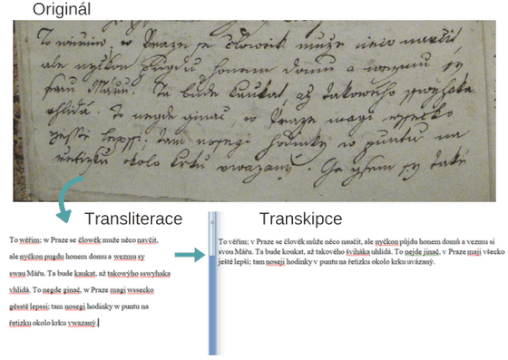 Originál
To wěřim; w Praze se člowěk muže něco naučit,
ale nyčkon pugdu honem domu a wezmu sy
swau Mářu. Ta bude kaukat, až takowýho sswyhaka
vhlidá. To negde ginač, w Praze magi wssecko
gesstě lepssi; tam nosegi hodinky w puntu na
řetizku okolo krku vwazaný. Ga gsem sy také
Transliterace
To wěřim; w Praze se člowěk muže něco naučit,
ale nyčkon pugdu honem domu a wezmu sy
swau Mářu. Ta bude kaukat, až takowýho sswyhaka
vhlidá. To negde ginač, w Praze magi wssecko
gesstě lepssi; tam nosegi hodinky w puntu na
řetizku okolo krku vwazaný.
Transkipce
To věřim; v Praze se člověk může něco naučit, ale nyčkon půjdu honem domů a vezmu si
svou Mářu. Ta bude koukat, až takového šviháka uhlídá. To nejde jináč, v Praze mají všecko
ještě lepší; tam nosejí hodinky v puntu na řetízku okolo krku uvázaný.